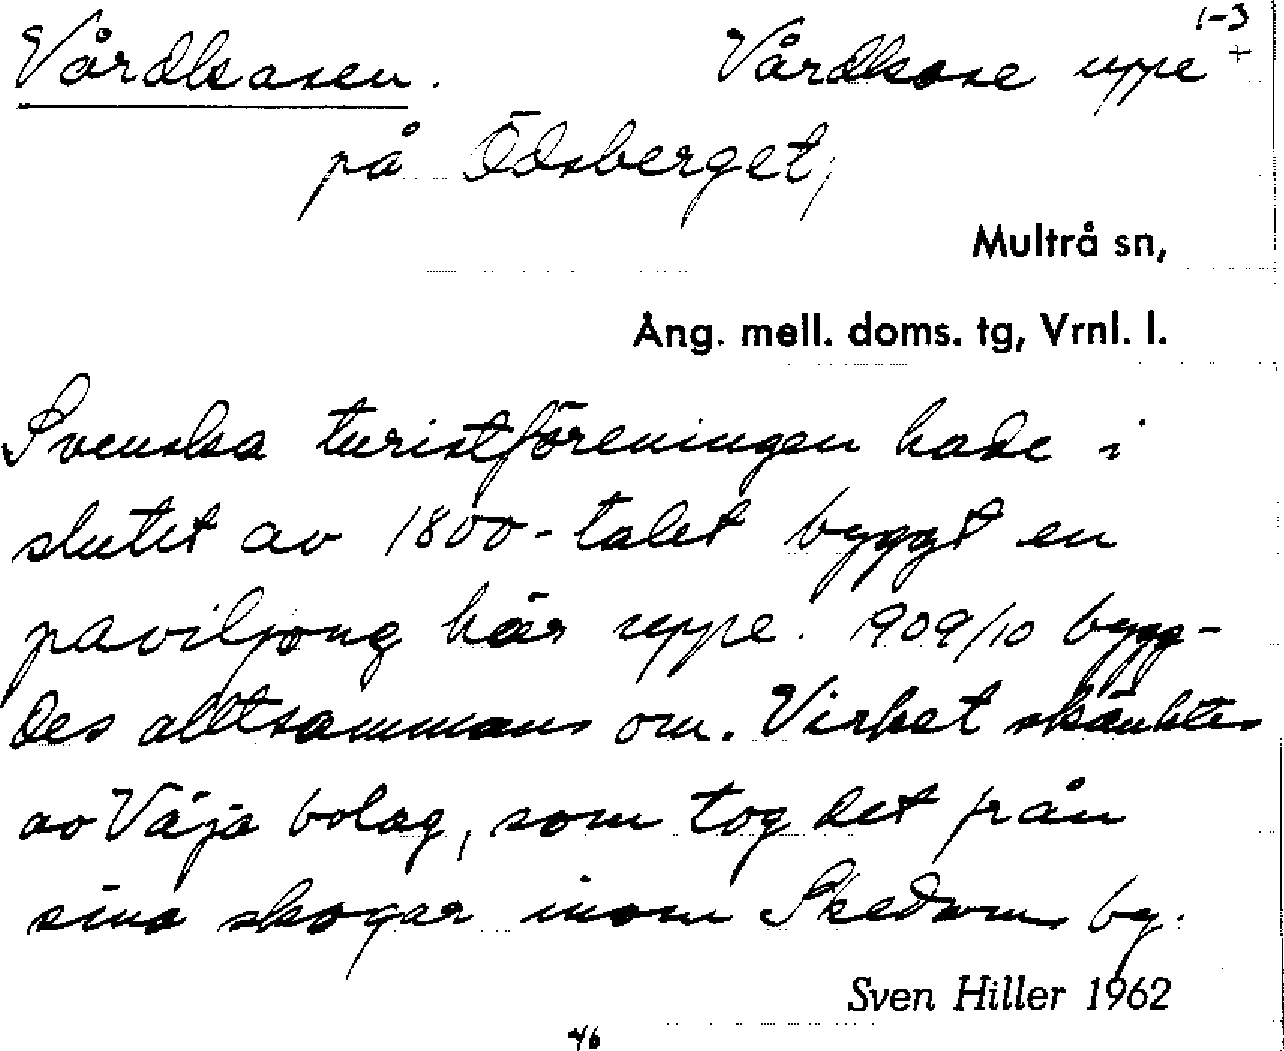 1-3
Vårdkasen. Vårdkase uppe +
på Ödsberget,
Multrå sn,
Ång. mell. doms. tg, Vrnl. l.
Svenska turistföreningen hade i
slutet av 1800-talet byggt en
paviljong här uppe. 1909/10 bygg-
des alltsammans om. Virket skänktes
av Väja bolag, som tog det från
sina skogar inom Skedoms by.
Sven Hiller 1962
46